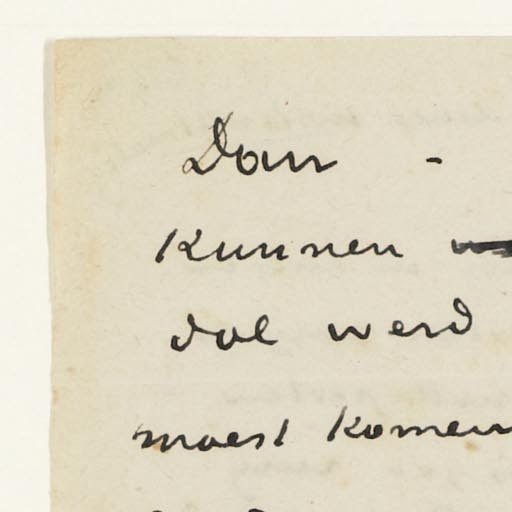 Dan -
kunnen
dol werd
moest komen